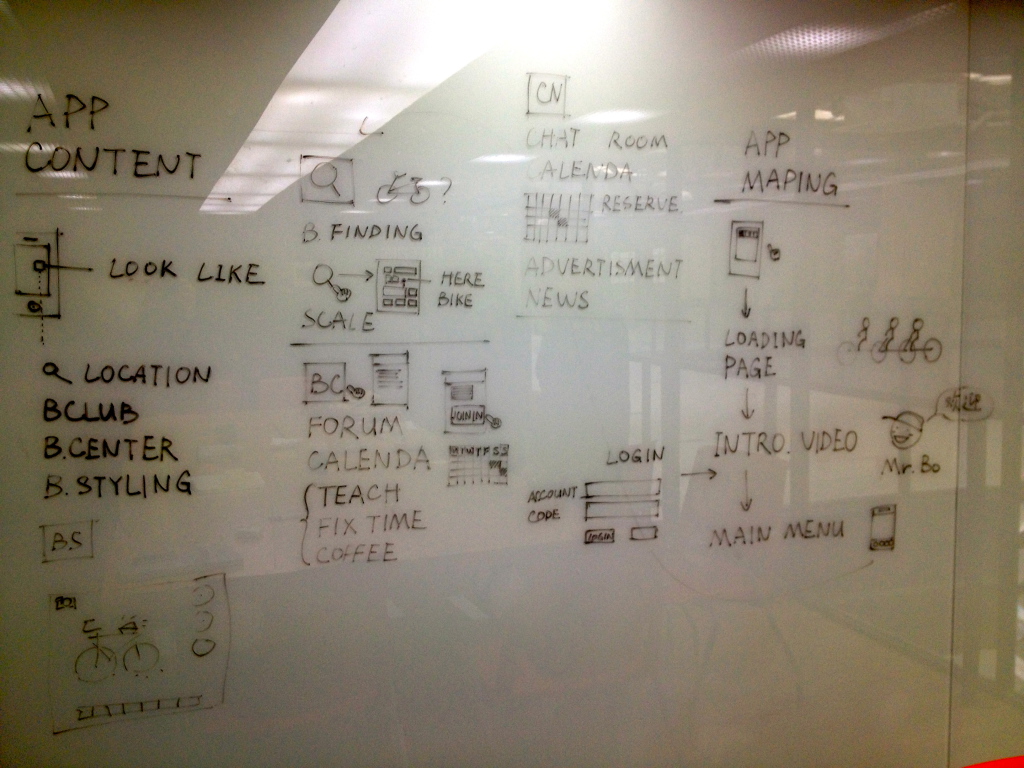 APP
CONTENT
LOOK LIKE
LOCATION
BCLUB
B.CENTER
B.STYLING
B.S
?
B. FINDING
HERE
BIKE
SCALE
BC
JOIN IN
FORUM
CALENDA
MTWTFSS
TEACH
FIX TIME
COFFEE
CN
CHAT ROOM
CALENDA
RESERVE.
ADVERTISMENT
NEWS
LOGIN
ACCOUNT
CODE
LOGIN
APP
MAPING
LOADING
PAGE
INTRO. VIDEO
Mr. Bo
MAIN MENU